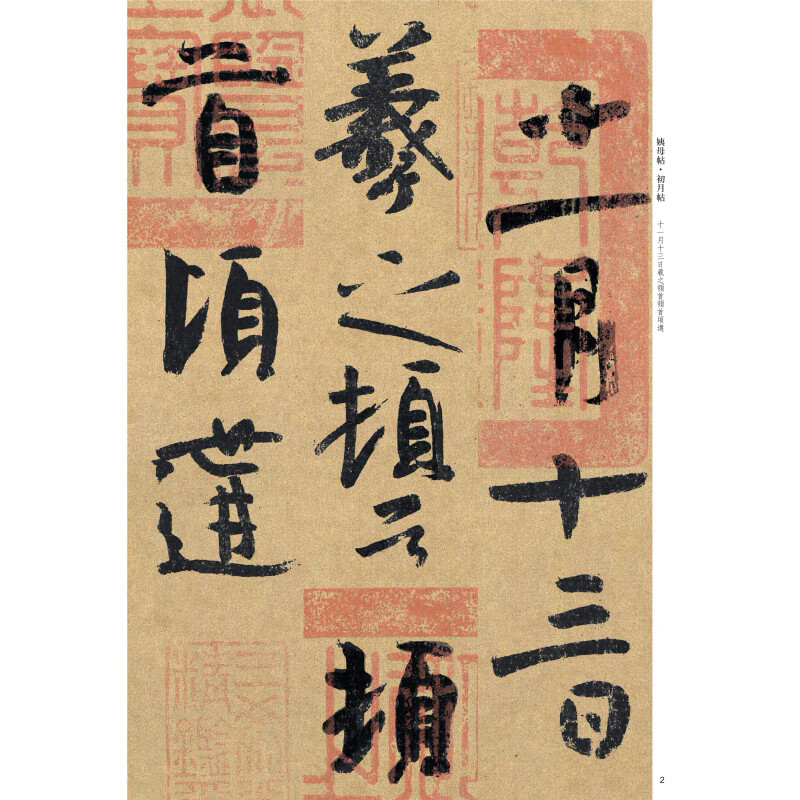 姨母帖·初月帖
十一月十三日羲之頓首頓首頃遘
十一月十三日
羲之頓首頓
首頃遘
乾隆
2